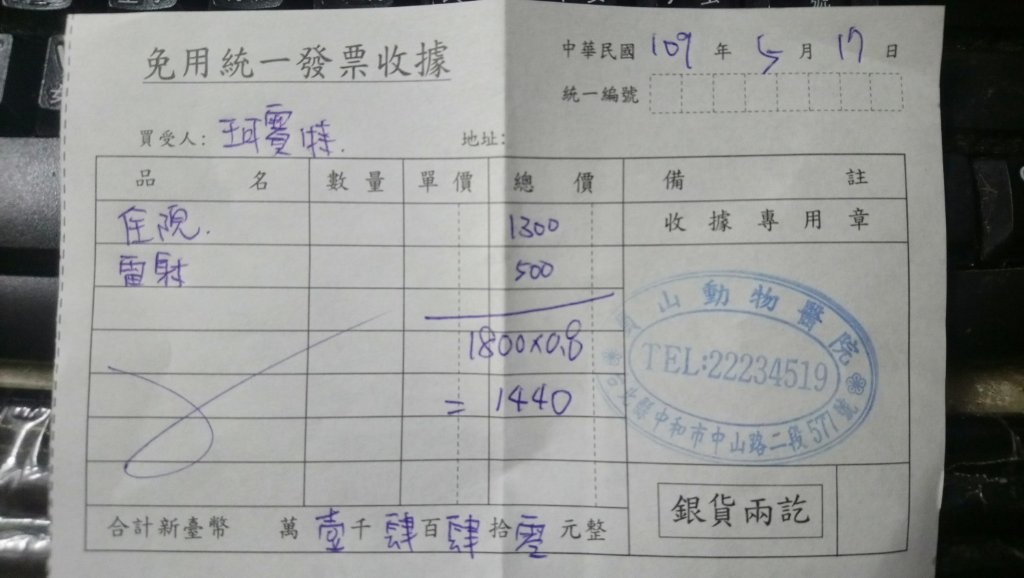 免用統一發票收據
中華民國 109 年 5 月 17 日
統一編號
買受人: 珂賽特.
地址:
品名 數量 單價 總價 備註
住院. 1300 收據專用章
雷射 500
1800×0.8
= 1440
山動物醫院
TEL:22234519
北縣中和市中山路二段577號
銀貨兩訖
合計新臺幣 萬壹千肆百肆拾零元整